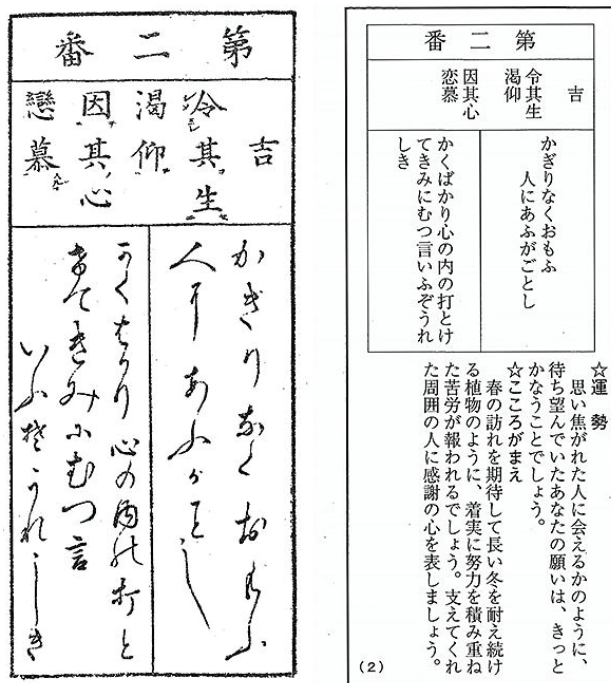 第二番
吉
令其生
渇仰
因其心
戀慕
かぎりなくおもふ
人にあふがことし
かくはかり心の内の打と
けてきみにむつ言
いふそうれしき
第二番
吉
令其生
渇仰
因其心
恋慕
かぎりなくおもふ
人にあふがごとし
かくばかり心の内の打とけ
てきみにむつ言いふぞうれ
しき
☆運 勢
思い焦がれた人に会えるかのように、
待ち望んでいたあなたの願いは、きっと
かなうことでしょう。
☆こころがまえ
春の訪れを期待して長い冬を耐え続け
る植物のように、着実に努力を積み重ね
た苦労が報われるでしょう。支えてくれ
た周囲の人に感謝の心を表しましょう。
(2)